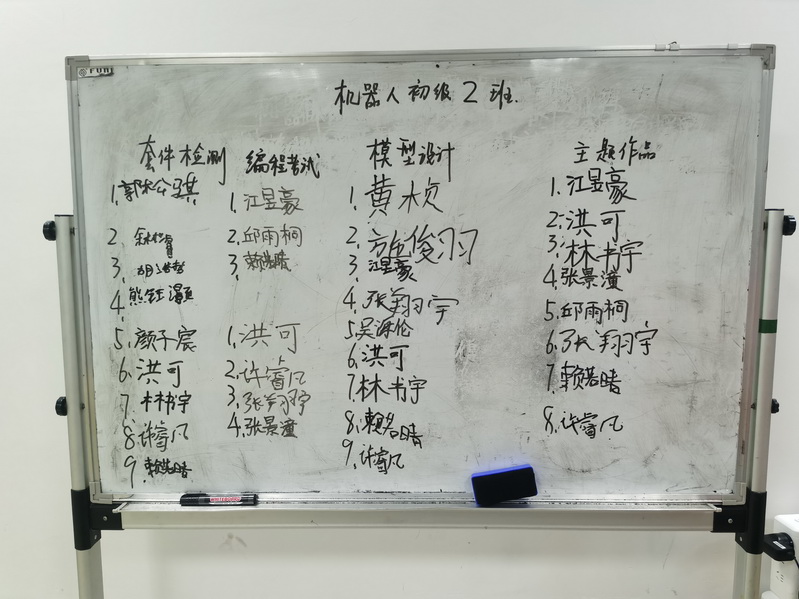 机器人初级2班.
套件检测
1.
2.
3.
4.
5.颜子宸
6.洪可
7.林书宇
8.许睿凡
9.赖若晴
编程考试
1.江昱豪
2.邱雨桐
3.赖若晴
1.洪可
2.许睿凡
3.张翔宇
4.张景潼
模型设计
1.黄桢
2.方俊羽
3.江昱豪
4.张翔宇
5.吴海伦
6.洪可
7.林书宇
8.赖若晴
9.许睿凡
主题作品
1.江昱豪
2.洪可
3.林书宇
4.张景潼
5.邱雨桐
6.张翔宇
7.赖若晴
8.许睿凡